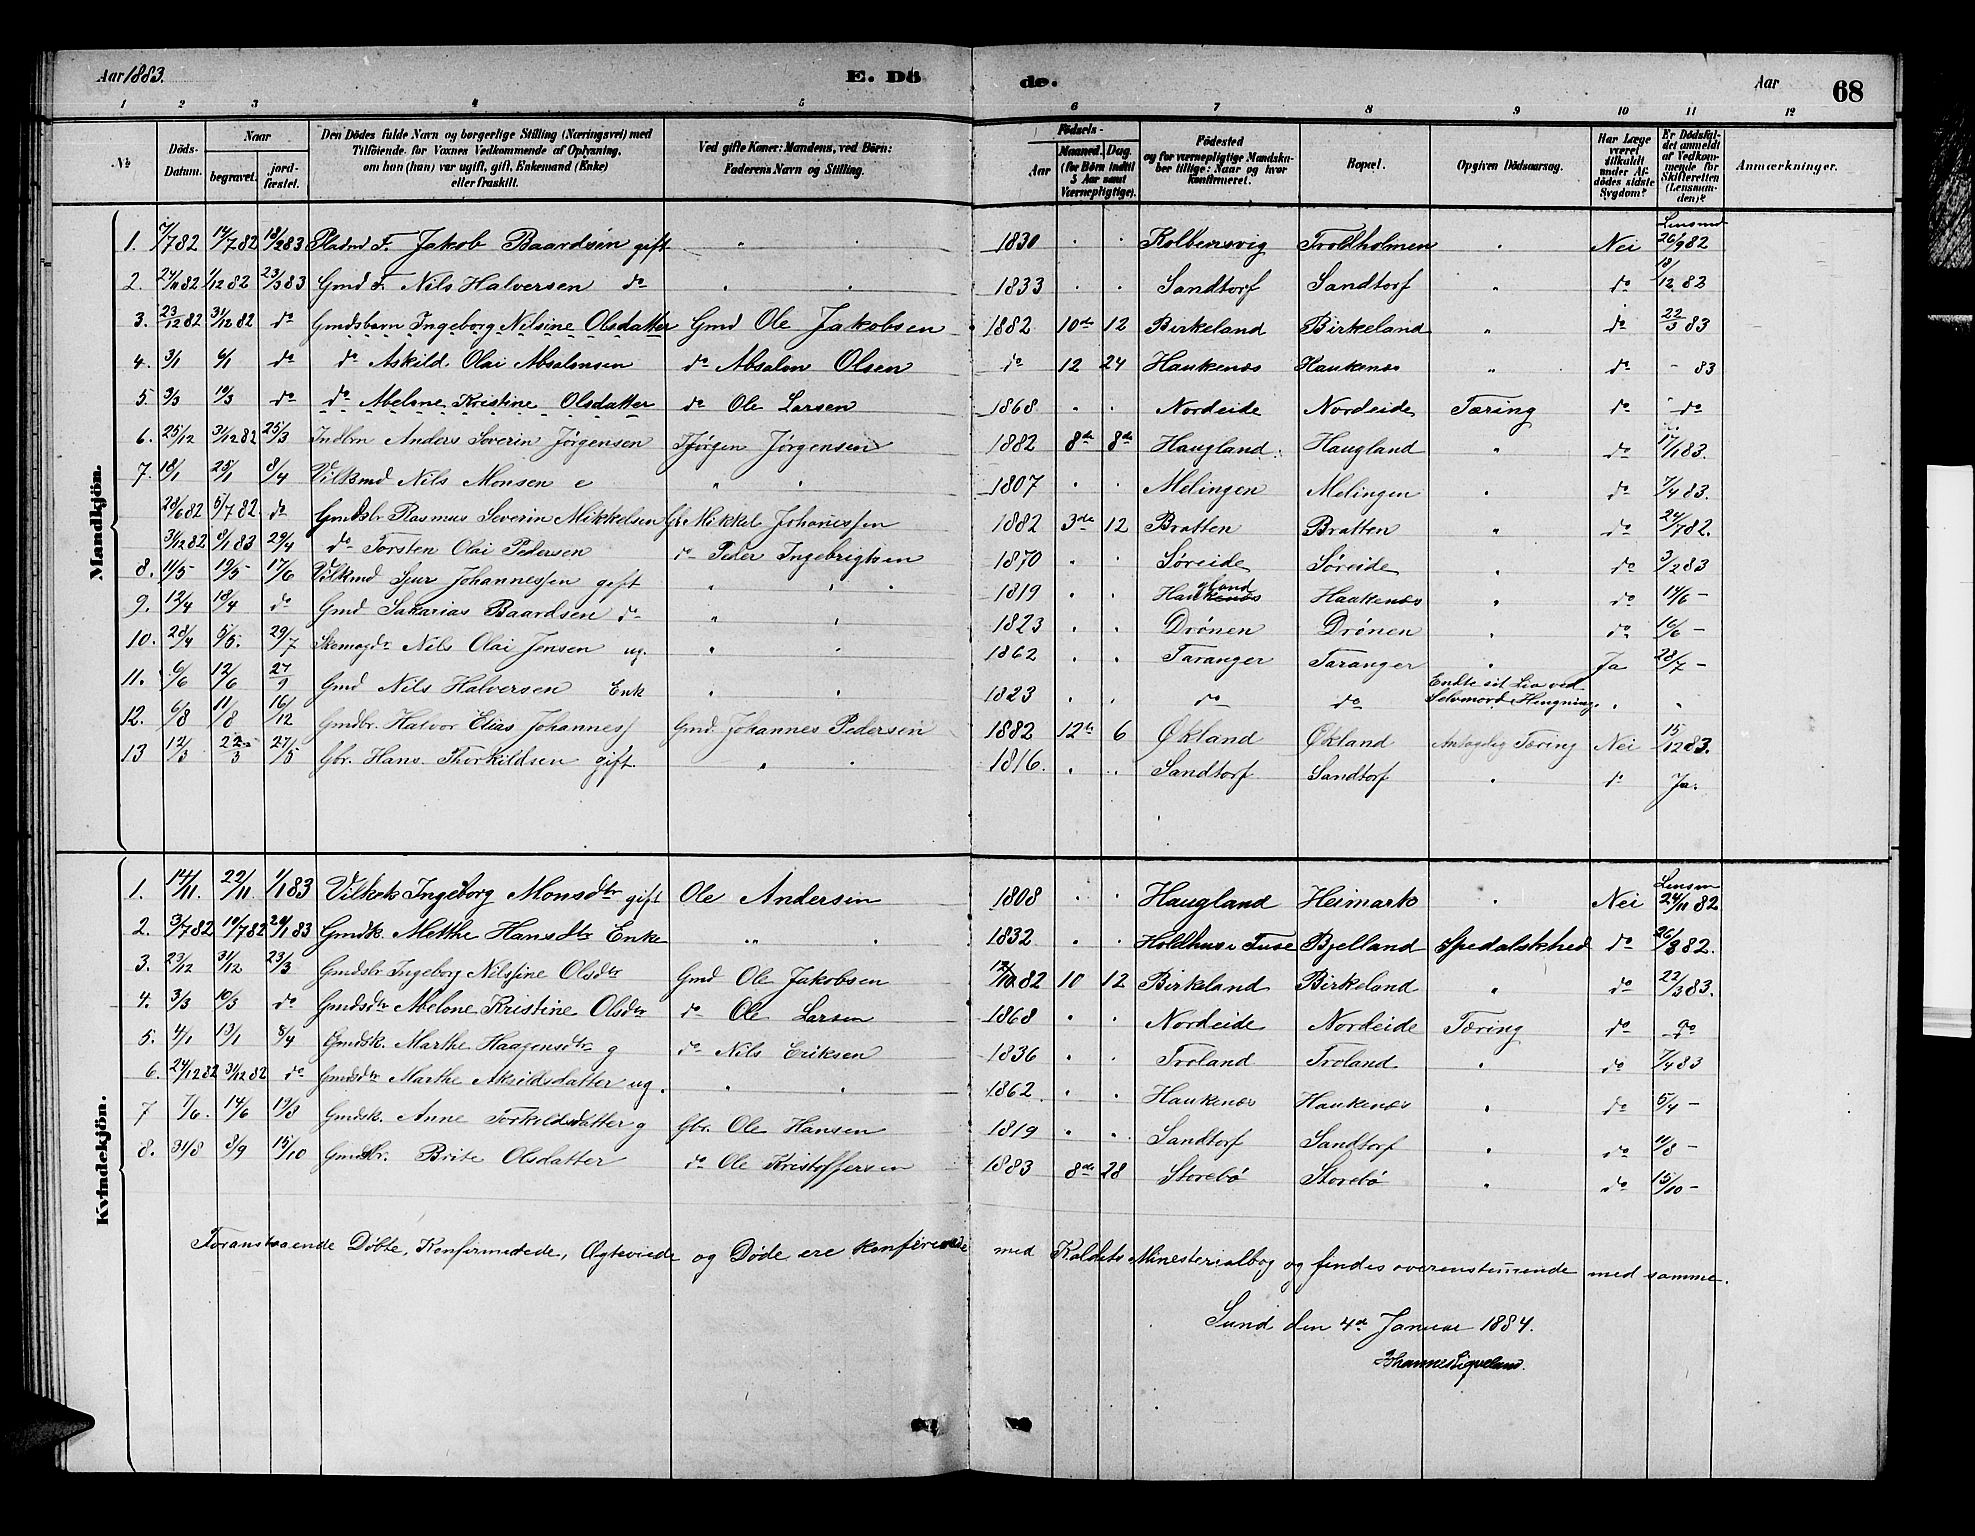 Aar 1883. E. Dö de. Aar 68
1 2 3 4 5 6 7 8 9 10 11 12
№ Döds-Datum. Naar begravet. jord-fæstet. Den Dödes fulde Navn og borgerlige Stilling (Næringsvei) med Tilföiende for Voxnes Vedkommende af Oplysning, om hun (han) var ugift, gift, Enkemand (Enke) eller fraskilt. Ved gifte Koner: Mandens, ved Börn: Faderens Navn og Stilling. Födsels- Aar Maaned. Dag. (for Börn indtil 5 Aar samt Værnepligtige). Födested og for værnepligtige Mandskaber tillige: Naar og hvor Konfirmeret. Bopæl. Opgiven Dödsaarsag. Har Læge været tilkaldt under Afdödes sidste Sygdom? Er Dödsfaldet anmeldt af Vedkommende for Skifteretten (Lensmanden)? Anmærkninger.
Mandkjön.
1. 7/7 82 14/7 82 18/2 83 Pladsmd F. Jakob Baardsen gift " " 1830 " " Kolbensvig Troldholmen " Nei Lensmd 26/9 82
2. 24/11 82 1/12 82 23/3 83 Gmd F. Nils Halversen do " " 1833 " " Sandtorf Sandtorf " do 18/12 82
3. 23/12 82 31/12 82 do Gmdsbarn Ingeborg Nilsine Olsdatter Gmd Ole Jakobsen 1882 10de 12 Birkeland Birkeland " do 22/3 83
4. 3/1 6/1 do do Askild Olai Absalonsen do Absalon Olsen do 12 24 Haukenæs Haukenæs " do - 83
5. 3/3 10/3 do do Abelone Kristine Olsdatter do Ole Larsen 1868 " " Nordeide Nordeide Tæring do do
6. 25/12 31/12 82 25/3 Indbrn Anders Severin Jörgensen Jörgen Jörgensen 1882 8de 8de Haugland Haugland " do 17/1 83.
7. 18/1 25/1 8/4 Vilkmd Nils Monsen e " " 1807 " " Melingen Melingen " do 7/4 83.
28/6 82 5/7 82 do Gmdsbr Rasmus Severin Mikkelsen Gbr Mikkel Johannessen 1882 3de 12 Bratten Bratten " do 24/7 82.
31/12 82 6/1 83 29/4 do Torsten Olai Pedersen do Peder Ingebrigtsen 1870 " " Söreide Söreide " do 3/2 83
8. 11/5 19/5 17/6 Vilkmd Sjur Johannessen gift " " 1819 " " Haugland Haukenæs " do 14/6 -
9. 12/4 18/4 do Gmd Sakarias Baardsen do " " 1823 " " Drönen Drönen " do 16/6 -
10. 28/4 5/5. 29/7 Skomagr Nils Olai Jensen ug. " " 1862 " " Taranger Taranger " Ja 28/7 -
11. 6/6 12/6 27/9 Gmd Nils Halversen Enk " " 1823 " " do do Endte sit Liv ved Selvmord Hengning " "
12. 6/8 11/8 16/12 Gmdbr. Halvor Elias Johannes Gmd. Johannes Pedersen 1882 12te 6 Økland Økland Antagelig Tæring Nei 15/12 83.
13 12/3 22/3 27/5 Gbr. Hans Thorkildsen gift. " " 1816. " " Sandtorf Sandtorf " do Ja.
Kvindekjön.
1. 14/11. 22/11. 1/1 83 Vilkek Ingeborg Monsdtr gift Ole Andersen 1808 " " Haugland Heimark " Nei Lensm 24/11 82
2. 3/7 82 10/7 82 28/1 83 Gmdk. Metthe Hansdtr Enke " " 1832. " " Holdhus i Fuse Bjelland Spedalskhed do 26/8 82.
3. 23/12 31/12 23/3 Gmdsbr Ingeborg Nilssine Olsdtr Gmd Ole Jakobsen 12/10 82 10 12 Birkeland Birkeland " do 22/3 83.
4. 3/3 10/3 do Gmdsdtr Abelone Kristine Olsdtr do Ole Larsen 1868 " " Nordeide Nordeide Tæring do do
5. 4/1 13/1 8/4 Gmdsk. Marthe Haagensdtr g do Nils Eriksen 1836 " " Troland Troland " do 7/4 83
6. 24/12 82 31/12 82 do Gmdsdtr Marthe Akseldsdatter ug. " " 1862. " " Haukenæs Haukenæs " do 5/4 -
7 7/6. 14/6 19/8 Gmdsk. Anne Torkildsdatter g Gbr. Ole Hansen 1819 " " Sandtorf Sandtorf " do 11/8 -
8. 31/8 8/9 15/10 Gmdsbr. Brite Olsdatter do Ole Kristoffersen 1883 8de 28 Storebö Storebö " do 15/10 -
Foranstaaende Döbte, Konfirmerede, Ægteviede og Döde ere konfererede med Kaldets Ministerialbog og findes overenstemende med samme.
Sund den 4de Januar 1884.
Johannes Liqueland.